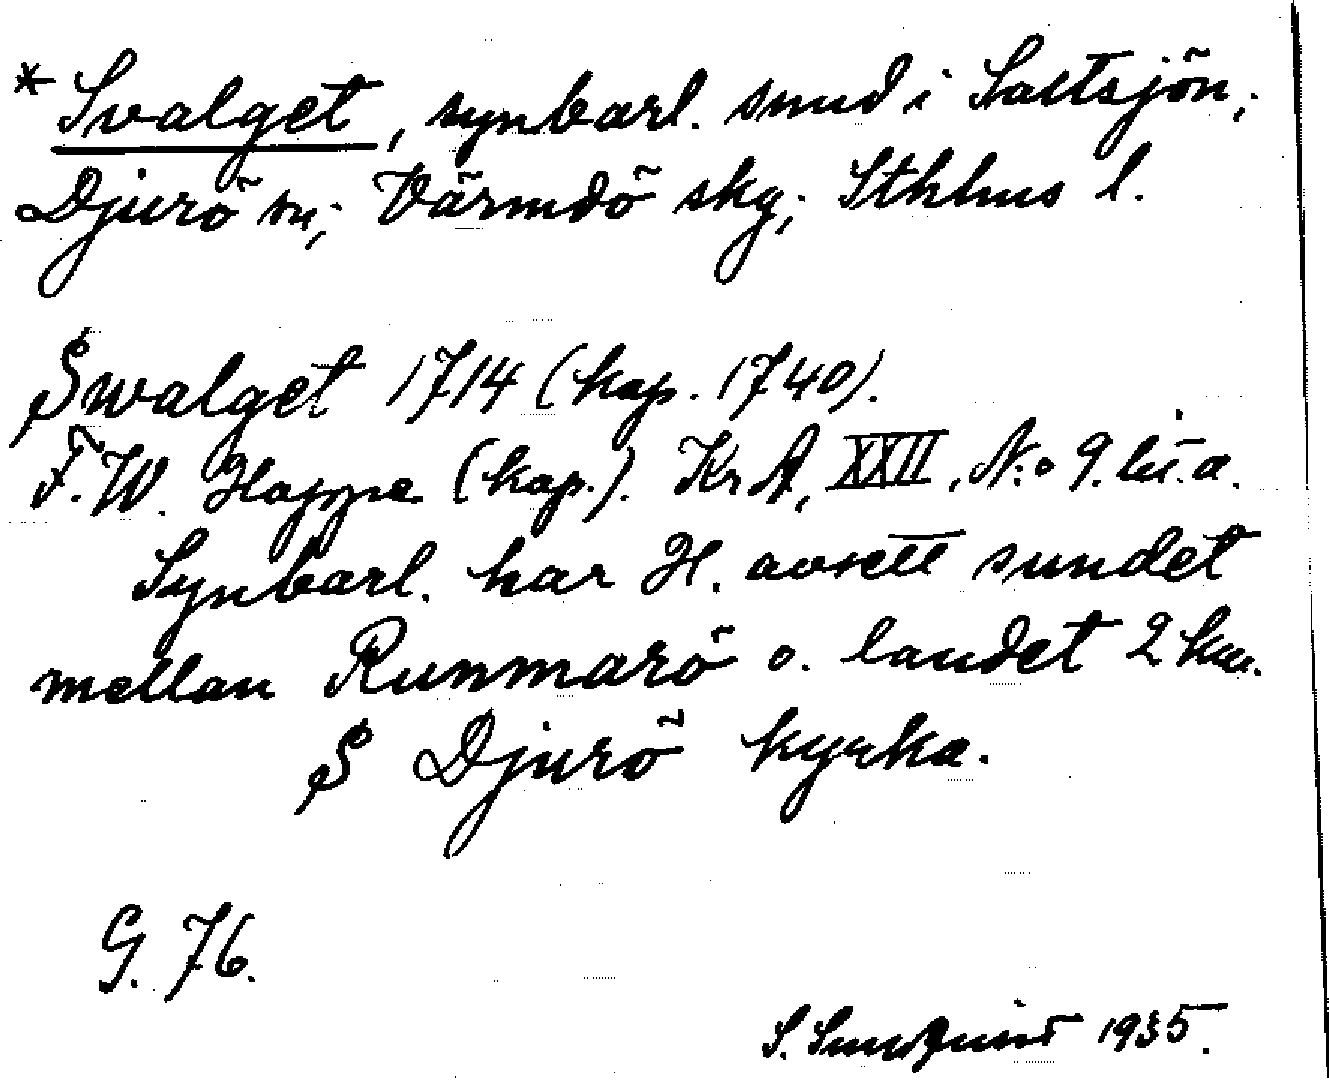 * Svalget, synbarl. sund i Saltsjön;
Djurö sn; Värmdö skg; Sthlms l.
Swalget 1714 (kop. 1740).
F.W. Happe (kop.). Kr A, XXII, N:o 9. lit. a.
Synbarl. har H. avsett sundet
mellan Runmarö o. landet 2 km.
S Djurö kyrka.
G. 76.
S. Sundquist 1935.